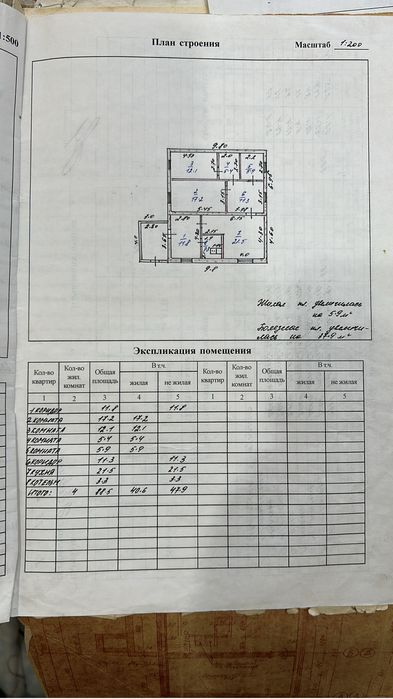 1:500
План строения
Масштаб 1:200
9.80
4.30
2.0
2.2
3
12.1
4
5.4
5
5.9
2
17.2
6
11.3
5.45
3.98
2.0
2.80
2.80
6.15
4.0
1
11.8
7
21.5
4.60
9.8
Жилая пл. увеличилась
на 5.9 м²
Полезная пл. увеличи-
лась на 17.9 м²
Экспликация помещения
Кол-во квартир Кол-во жил. комнат Общая площадь В т.ч. жилая не жилая Кол-во квартир Кол-во жил. комнат Общая площадь В т.ч. жилая не жилая
1 2 3 4 5 1 2 3 4 5
1 коридор 11.8 11.8
2 комната 17.2 17.2
3 комната 12.1 12.1
4 комната 5.4 5.4
5 комната 5.9 5.9
6 коридор 11.3 11.3
7 кухня 21.5 21.5
8 котельн 3.3 3.3
Итого: 4 88.5 40.6 47.9